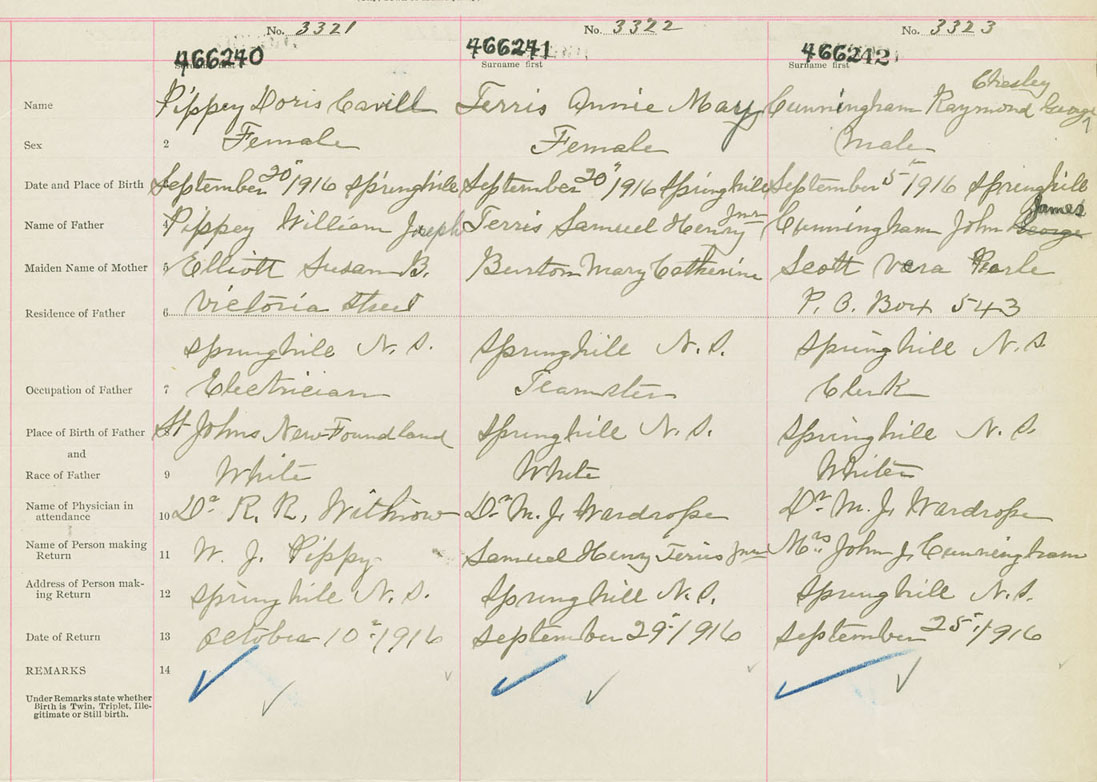 No. 3321 No. 3322 No. 3323
466240 466241 466242
Surname first Surname first Surname first
Chesley
Name Pippey Doris Cavill Terris Annie May Cunningham Raymond George
Sex 2 Female Female Male
Date and Place of Birth September 20" 1916 Springhill September 20" 1916 Springhill September 5" 1916 Springhill
James
Name of Father 4 Pippey William Joseph Terris Samuel Henry Jnr Cunningham John George
Maiden Name of Mother 5 Elliott Susan B. Burton Mary Catherine Scott Vera Pearle
Residence of Father 6 Victoria Street P. O. Box 543
Springhill N. S. Springhill N. S. Springhill N. S
Occupation of Father 7 Electrician Teamster Clerk
Place of Birth of Father St Johns New Foundland Springhill N. S. Springhill N. S
and
Race of Father 9 White White White
Name of Physician in attendance 10 Dr R. R. Withrow Dr M. J. Wardrope Dr M. J. Wardrope
Name of Person making Return 11 W. J. Pippy Samuel Henry Terris Jnr Mrs. John J. Cunningham
Address of Person mak-
ing Return 12 Springhill N. S. Springhill N. S. Springhill N. S.
Date of Return 13 October 10" 1916 September 29" 1916 September 25" 1916
REMARKS 14
Under Remarks state whether
Birth is Twin, Triplet, Ille-
gitimate or Still birth.